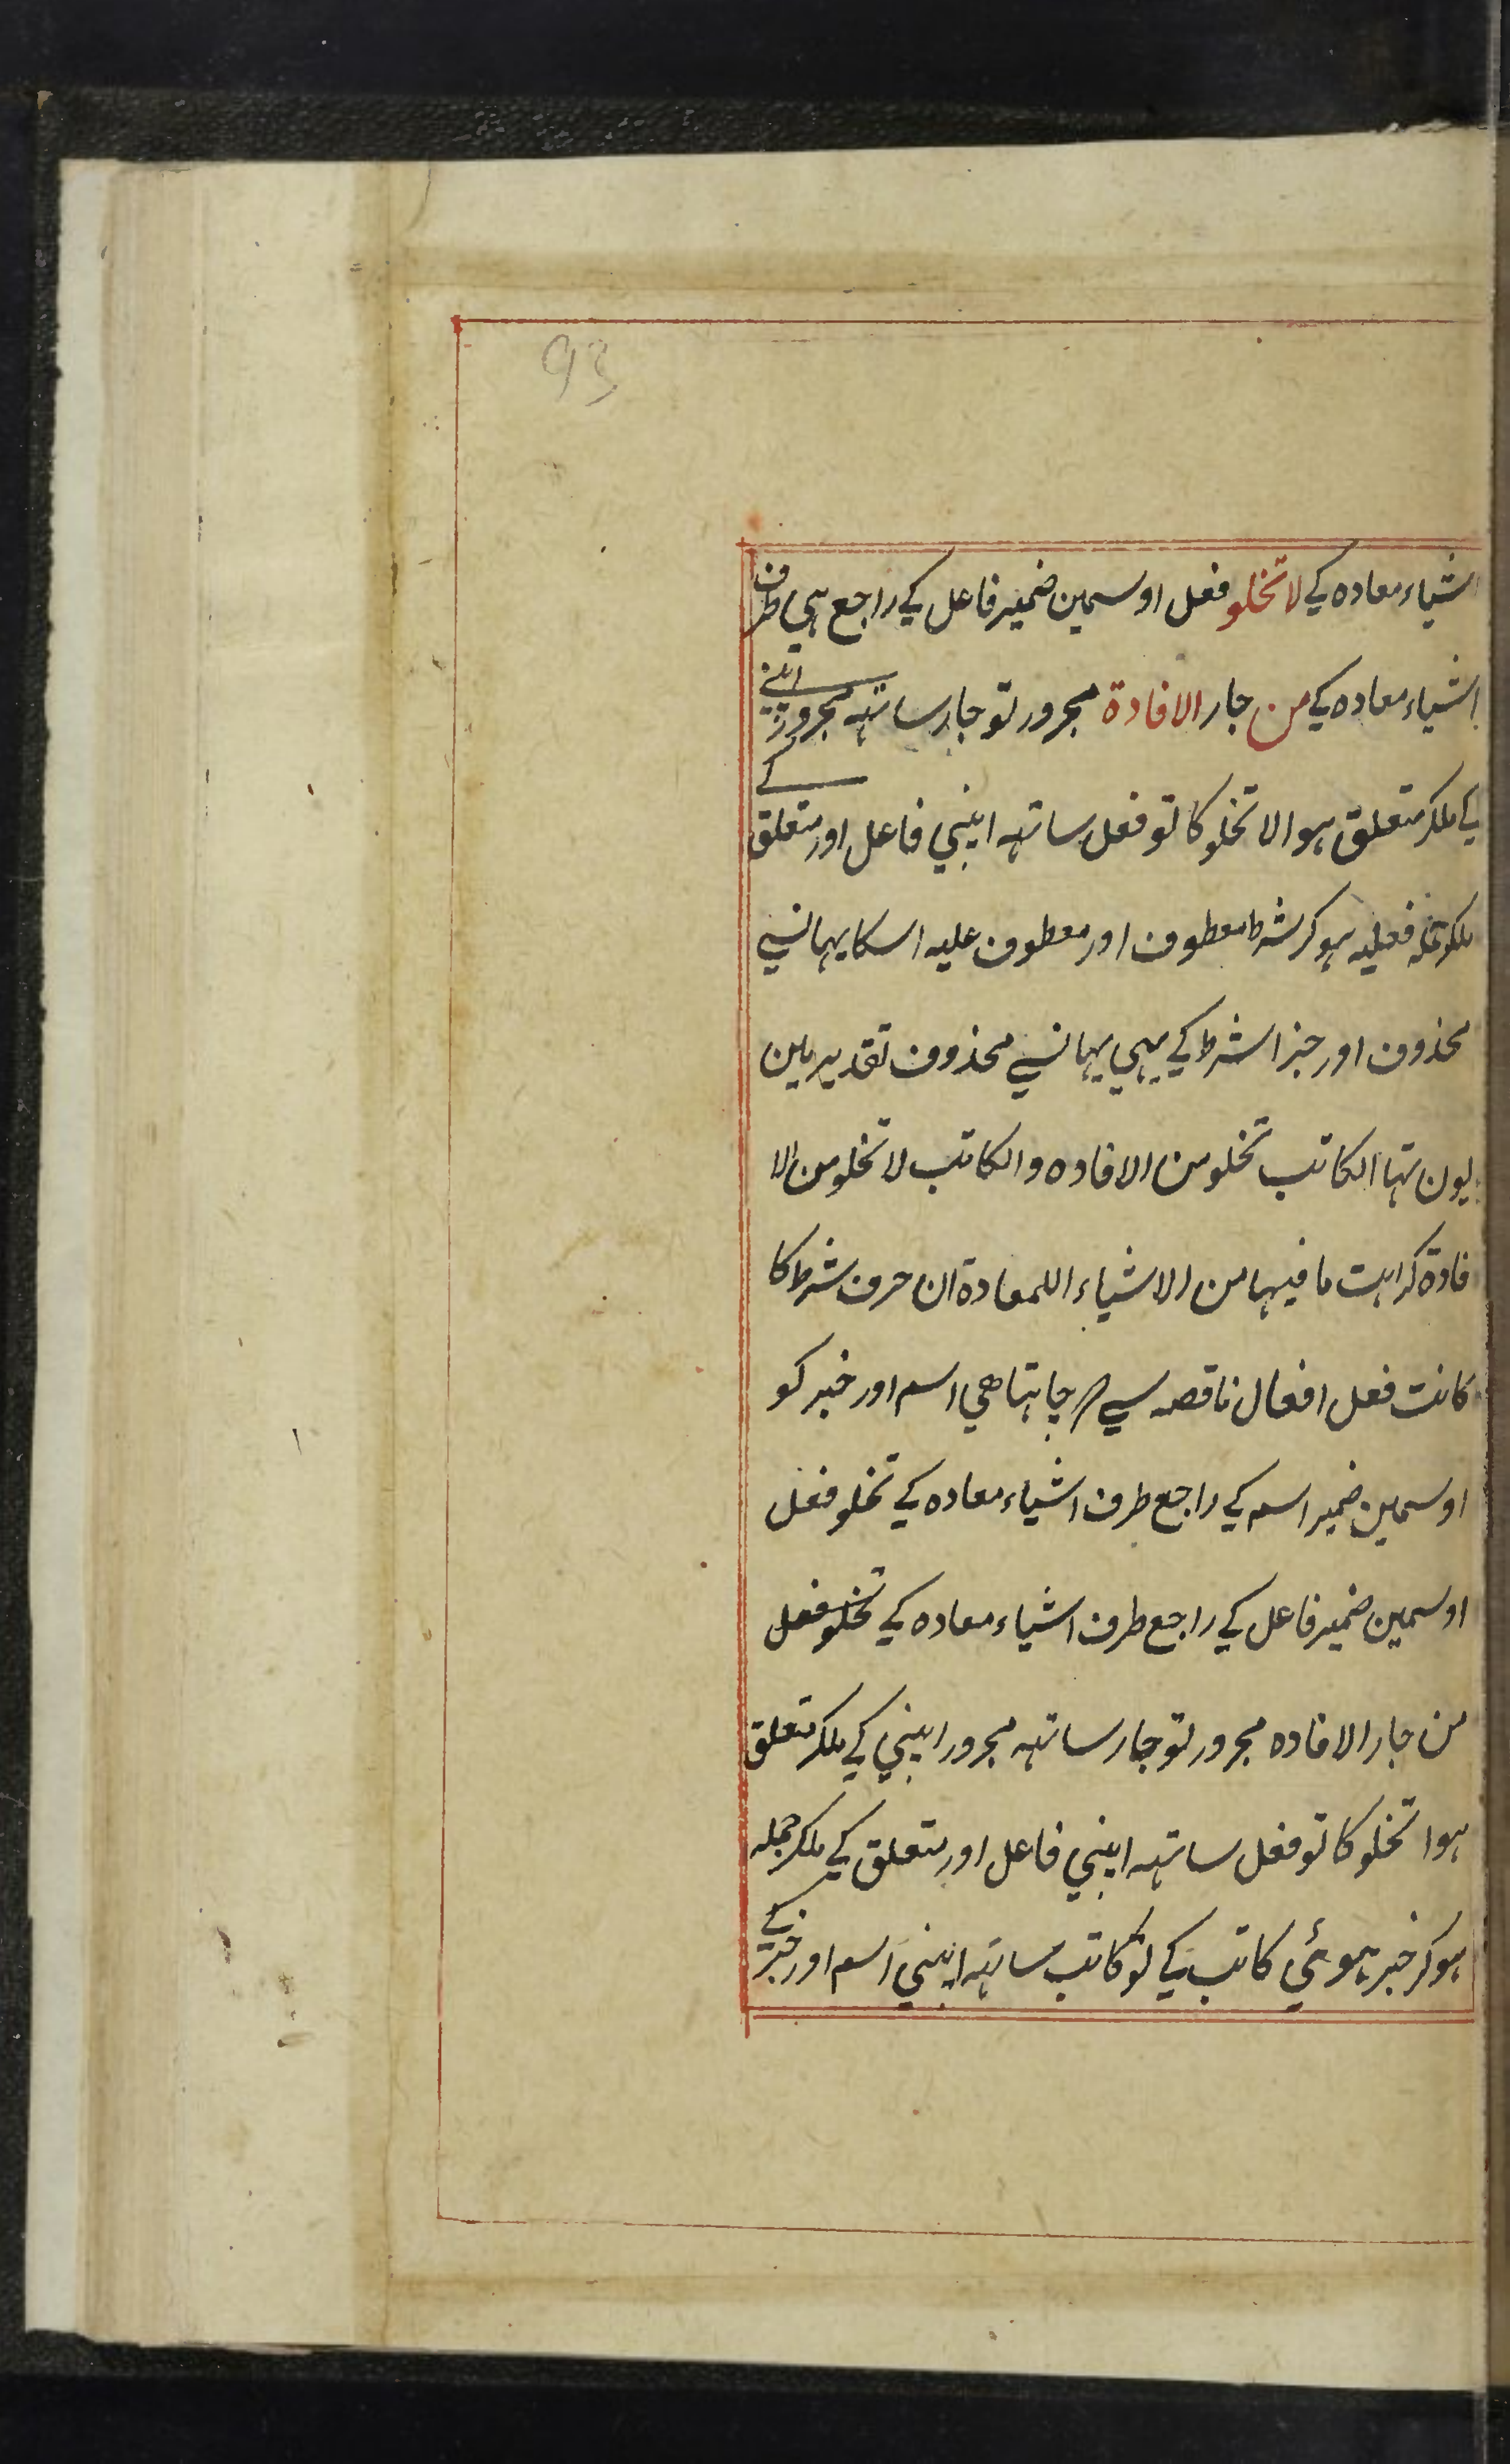 93
اشیاء معاده کی لا تخلو فعل اوسمین ضمیر فاعل کی راجع ہی طرف
اشیاء معاده کی من جار الافادة مجرور تو جار ساتہہ مجرور اپنے
کے
کی ملکر متعلق ہوا لا تخلو کا تو فعل ساتہہ اپنی فاعل اور متعلق
ملکر جملہ فعلیہ ہوکر شرط معطوف اور معطوف علیہ اسکا یہانسی
محذوف اور جزا شرط کی بہی یہانسی محذوف تقدیر مین
یون تہا الکاتب تخلو من الافاده والکاتب لا تخلو من الا
فادة کراہت ما فیہا من الاشیاء اللمعادة ان حرف شرط کا
کانت فعل افعال ناقصہ سی چاہتا ھی اسم اور خبر کو
اوسمین ضمیر اسم کی راجع طرف اشیاء معاده کی تخلو فعل
اوسمین ضمیر فاعل کی راجع طرف اشیاء معاده کی تخلو فعل
من جار الافاده مجرور تو جار ساتہہ مجرور اپنی کی ملکر متعلق
ہوا تخلو کا تو فعل ساتہہ اپنی فاعل اور متعلق کی ملکر جملہ
ہوکر خبر ہوئي کاتب کی تو کاتب ساتہہ اپنی اسم اور خبر کے